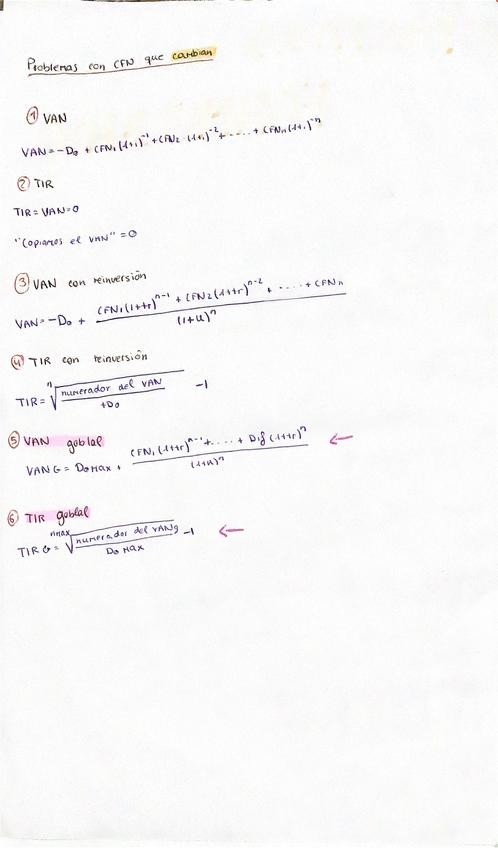 Problemas con CFN que cambian
① VAN
VAN = -D₀ + CFN₁(1+i)⁻¹ + CFN₂·(1+i)⁻² + ..... + CFNₙ(1+i)⁻ⁿ
② TIR
TIR = VAN = 0
"Copiamos el VAN" = 0
③ VAN con reinversión
VAN = -D₀ + (CFN₁(1+r)ⁿ⁻¹ + CFN₂(1+r)ⁿ⁻² + ..... + CFNₙ) / (1+k)ⁿ
④ TIR con reinversión
TIR = ⁿ√(numerador del VAN / +D₀) -1
⑤ VAN goblal
VAN G = D₀ Max + (CFN₁(1+r)ⁿ⁻¹ + .... + Dif(1+r)ⁿ) / (1+k)ⁿ ←
⑥ TIR goblal
TIR G = ⁿᵐᵃˣ√(numerador del VANg / D₀ Max) -1 ←